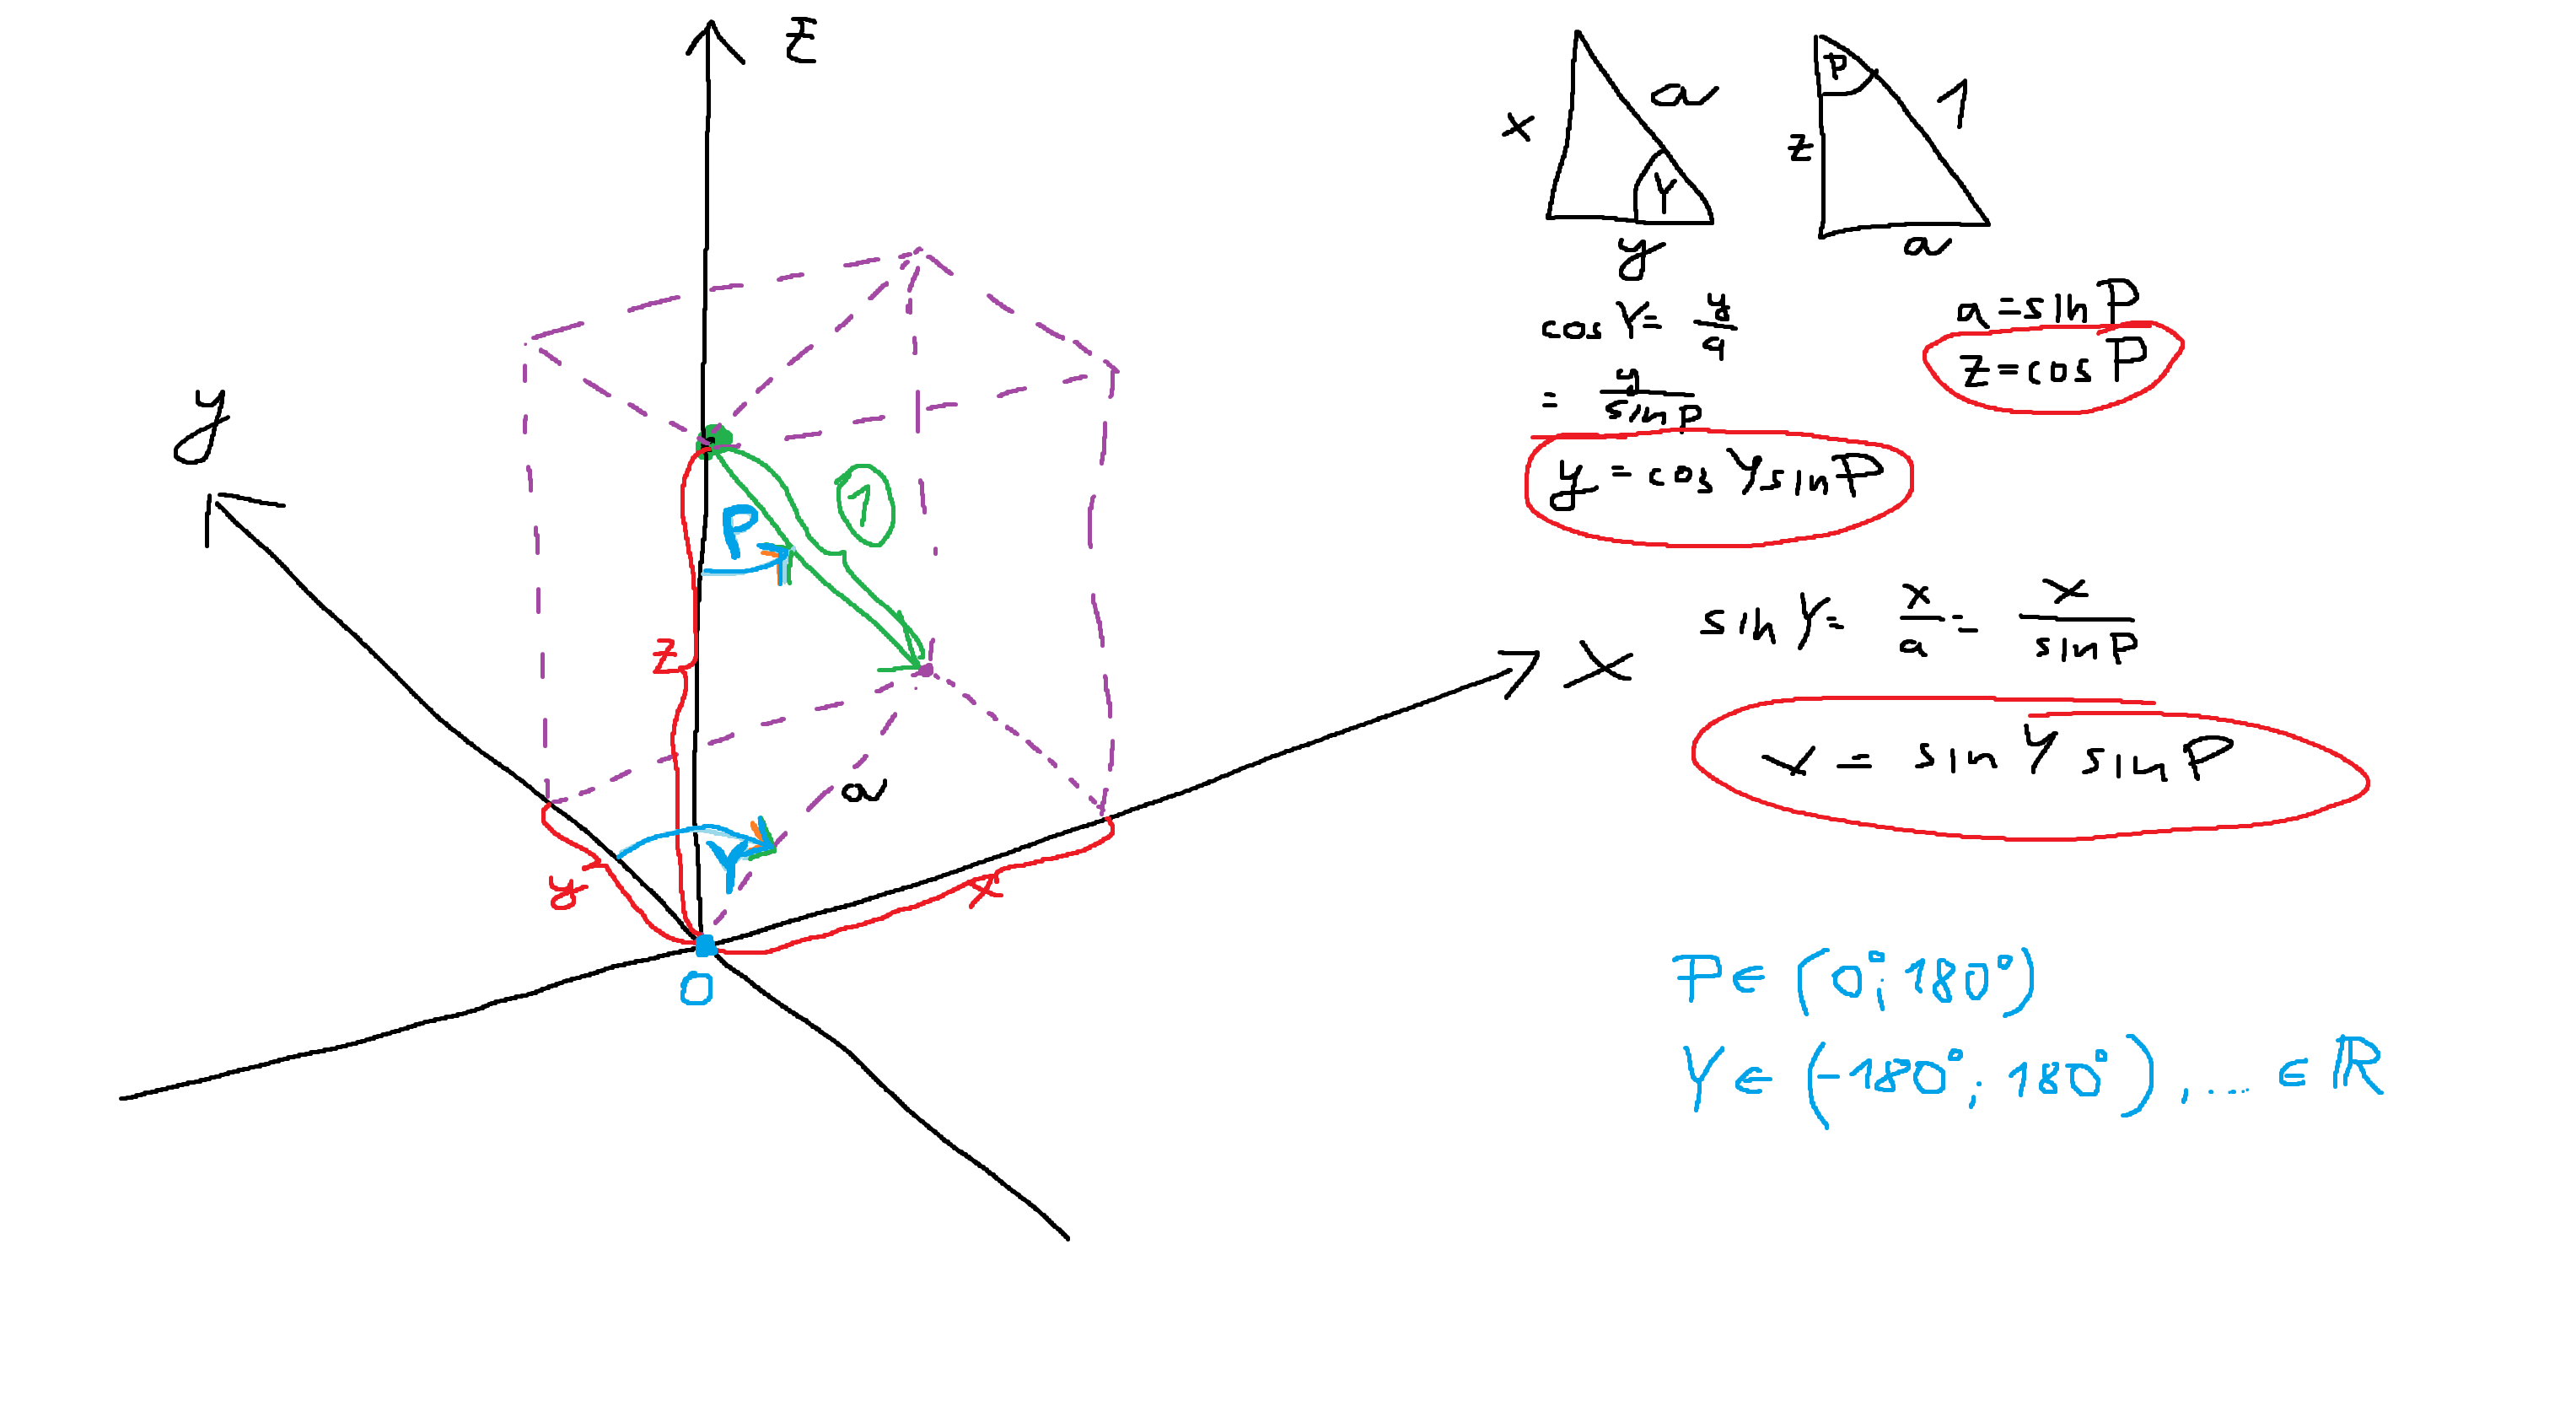 z
y
x
P
1
z
a
Y
y
x
0
x
a
Y
y
P
1
z
a
cos Y = y/a
= y/sin P
y = cos Y sin P
a = sin P
z = cos P
sin Y = x/a = x/sin P
x = sin Y sin P
P ∈ (0°; 180°)
Y ∈ (-180°; 180°), .... ∈ ℝ